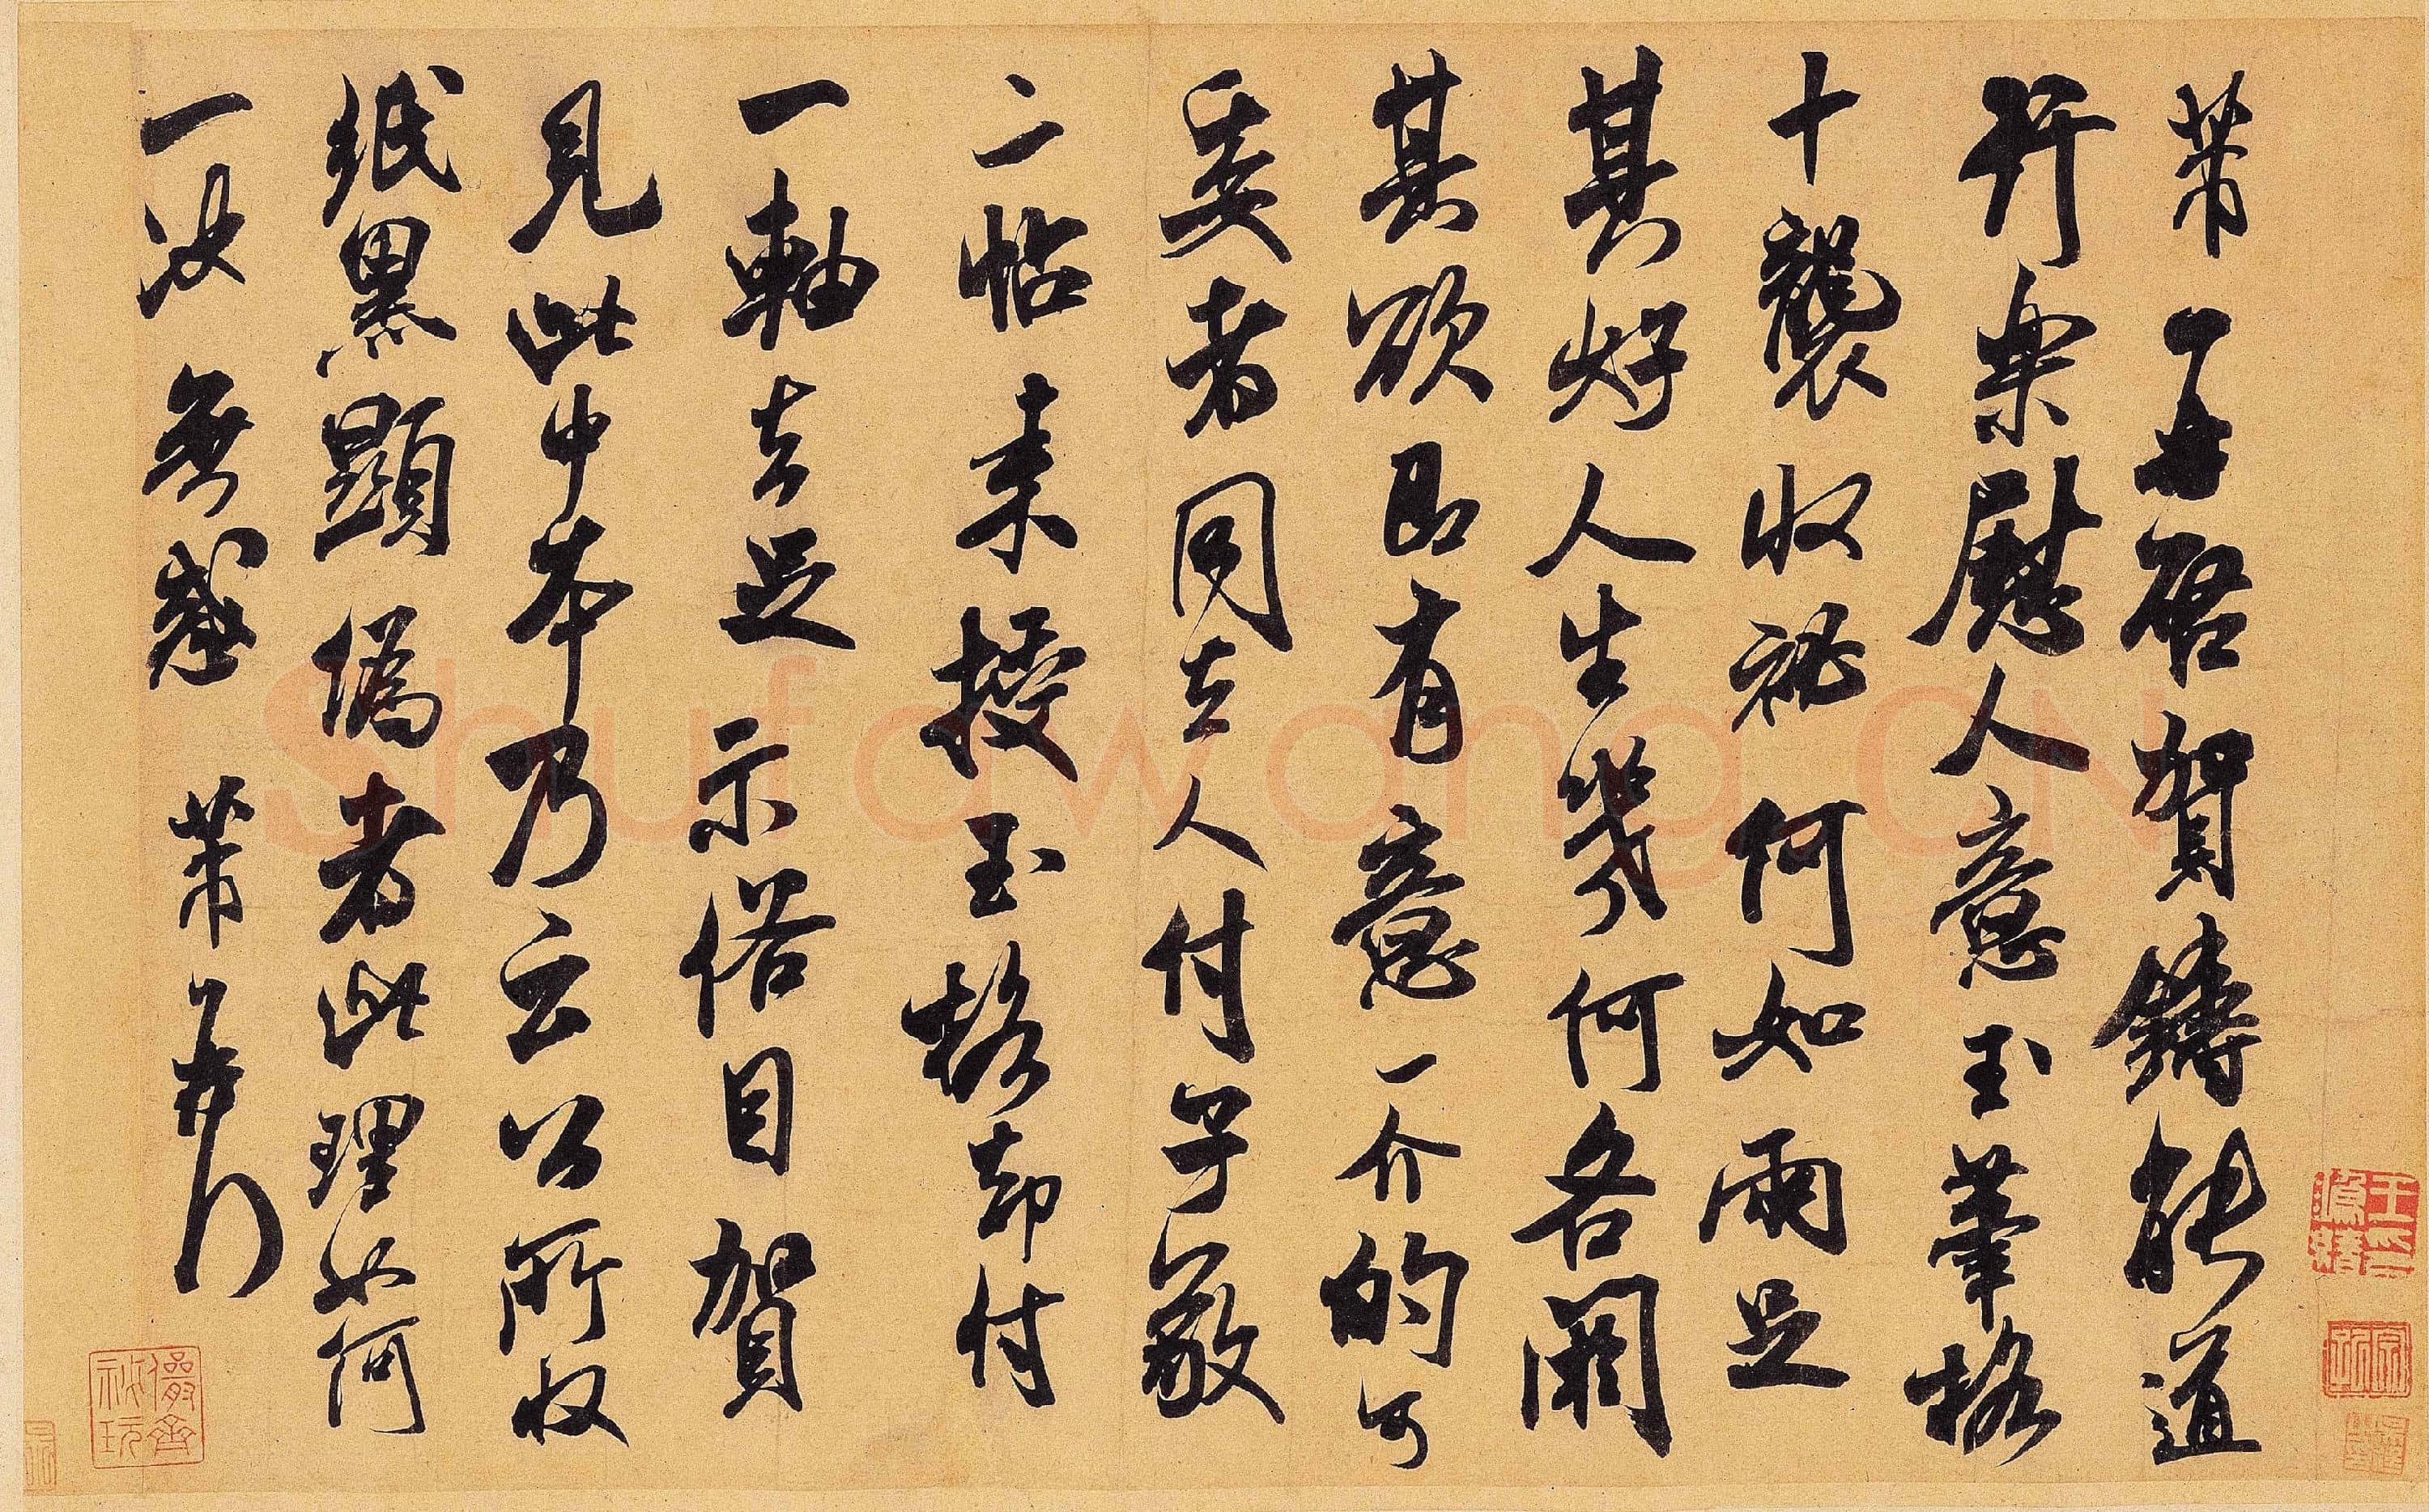 芾頓首再啓賀鑄能道
行樂慰人意玉筆格
十襲收祕何如兩足
其好人生幾何各閼
其欲即有意一介的可
委者同去人付子敬
二帖來授玉格却付
一軸去足示俗目賀
見此中本乃云公所收
紙黑顯僞者此理如何
一決無惑芾頓首
儼齋秘玩
Shufawang.CN